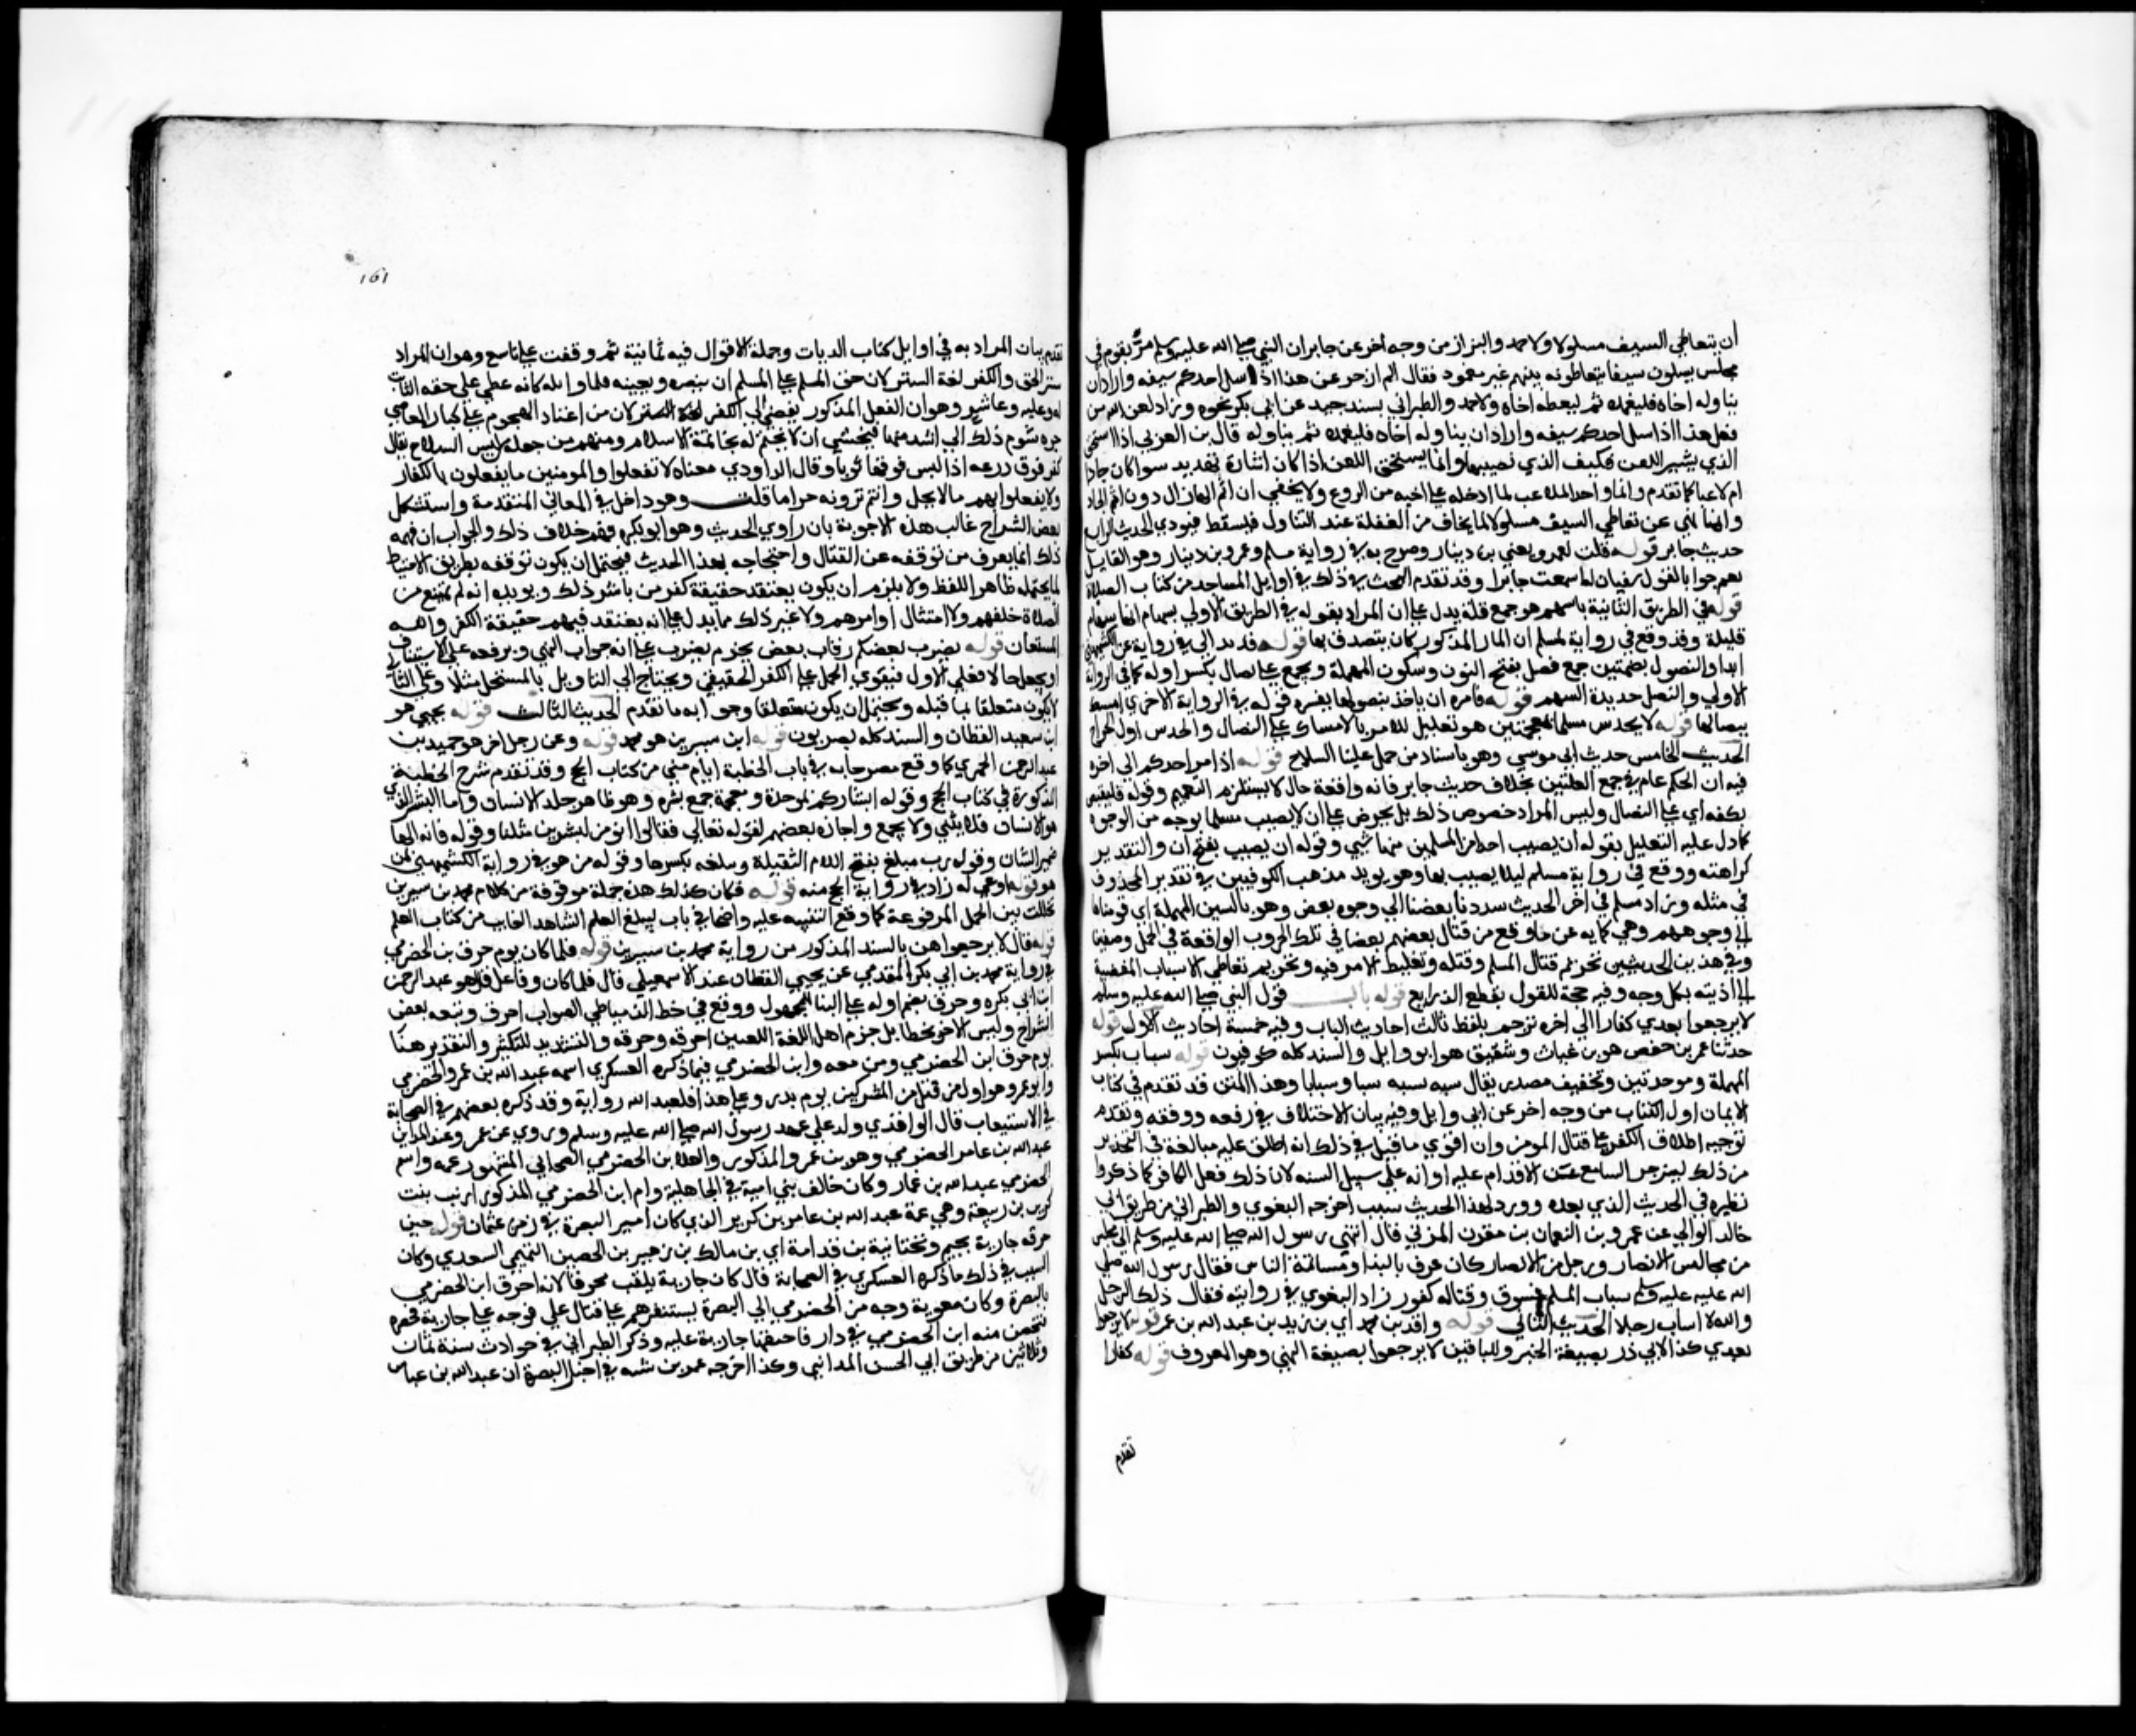 أن يتعاطى السيف مسلولا ولاحمد والبزاز من وجه اخر عن جابر ان النبي صلى الله عليه وسلم مرّ بقوم في
مجلس يسلون سيفا يتعاطونه بينهم غير مغمود فقال الم ازجر عن هذا اذا سل احدكم سيفه واراد ان
يناوله اخاه فليغمده ثم ليعطه اخاه ولاحمد والطبراني بسند جيد عن ابي بكرة نحوه وزاد لعن الله من
فعل هذا اذا سل احدكم سيفه واراد ان يناوله أخاه فليغمده ثم يناوله قال بن العربي اذا استحق
الذي يشير اللعن فكيف الذي يصيب بها وانما يستحق اللعن اذا كان اشارة تهديد سوا كان جادا
ام لاعبا كما تقدم وانما واخذ اللاعب لما ادخله على اخيه من الروع ولا يخفي ان اثم الهازل دون اثم الجاد
وانما نهي عن تعاطي السيف مسلولا لما يخاف من الغفلة عند التناول فيسقط فيودي الحديث الرابع
حديث جابر قوله قلت لعمرو يعني بن دينار وصرح به في رواية مسلم وعمرو بن دينار وهو القايل
نعم جوابا لقول سفيان له اسمعت جابرا وقد تقدم البحث في ذلك في اوايل المساجد من كتاب الصلاة
قوله في الطريق الثانية باسهم هو جمع قلة يدل على ان المراد بقوله في الطريق الاولي بسهام انها سهام
قليلة وقد وقع في رواية لمسلم ان المار المذكور كان يتصدق بها قوله قد بدا في رواية عن الكشميهني
ابدا والنصول بضمتين جمع نصل بفتح النون وسكون المهملة ويجمع على نصال بكسر اوله كما في الرواية
الاولي والنصل حديدة السهم قوله فامره ان ياخذ بنصولها يفسره قوله في الرواية الاخري امسك
بنصالها قوله لا يخدش مسلما بمعجمتين هو تعليل للامر بالامساك على النصال والخدش اول الجراح
الحديث الخامس حديث ابي موسى وهو باسناد من حمل علينا السلاح قوله اذا مر احدكم الى اخره
فيه ان الحكم عام في جمع العلتين بخلاف حديث جابر فانه واقعة حال لا يستلزم التعميم وقوله فليقبض
بكفه اي على النصال وليس المراد خصوص ذلك بل يحرص على ان لا يصيب مسلما بوجه من الوجوه
كما دل عليه التعليل بقوله ان يصيب احدا من المسلمين منها شي وقوله ان يصيب بفتح أن والتقدير
كراهته ووقع في رواية مسلم ليلا يصيب بها وهو يويد مذهب الكوفيين في تقدير المحذوف
في مثله وزاد مسلم في اخر الحديث سددنا بعضنا الي وجوه بعض وهو بالسين المهملة اي قومناها
الى وجوههم وهي كنايه عن ما وقع من قتال بعضهم بعضا في تلك الحروب الواقعة في الجمل وصفين
وفي هذين الحديثين تحريم قتال المسلم وقتله وتغليظ الامر فيه وتحريم تعاطي الاسباب المفضية
الى اذيته بكل وجه وفيه حجة للقول بقطع الذرايع قوله باب قول النبي صلى الله عليه وسلم
لا ترجعوا بعدي كفارا الي اخره ترجم بلفظ ثالث احاديث الباب وفيه خمسة احاديث الاول قوله
حدثنا عمر بن حفص هو بن غياث وشقيق هو ابو وايل والسند كله كوفيون قوله سباب بكسر
المهملة وموحدتين وتخفيف مصدر يقال سبه يسبه سبا وسبابا وهذا المتن قد تقدم في كتاب
الايمان اول الكتاب من وجه اخر عن ابي وايل وفيه بيان الاختلاف في رفعه ووقفه وتقدم
توجيه اطلاق الكفر على قتال المومن وان اقوي ما قيل في ذلك انه اطلق عليه مبالغة في التحذير
من ذلك لينزجر السامع عن الاقدام عليه او انه علي سبيل التشبيه لان ذلك فعل الكافر كما ذكروا
نظيره في الحديث الذي بعده وورد لهذا الحديث سبب اخرجه البغوي والطبراني من طريق ابي
خالد الوالبي عن عمرو بن النعمان بن مقرن المزني قال انتهى رسول الله صلى الله عليه وسلم الى مجلس
من مجالس الانصار ورجل من الانصار كان عرف بالبذا ومشاتمة الناس فقال رسول الله صلى
الله عليه وسلم سباب المسلم فسوق وقتاله كفر زاد البغوي في روايته فقال ذلك الرجل
والله لا اساب رجلا الحديث الثاني قوله واقد بن محمد اي بن زيد بن عبد الله بن عمر قوله لا ترجعوا
بعدي كذا لابي ذر بصيغة الخبر وللباقين لا ترجعوا بصيغة النهي وهو المعروف قوله كفارا
تقدم
١٥١
تقدم بيان المراد به في اوايل كتاب الديات وجملة الاقوال فيه ثمانية ثم وقفت على تاسع وهو ان المراد
ستر الحق والكفر لغة الستر لان حق المسلم على المسلم ان ينصره ويعينه فلما قاتله كانه غطى على حقه الثابت
له عليه وعاشر وهو ان الفعل المذكور يفضي الي الكفر لان من اعتاد الهجوم على كبار المعاصي
جره شوم ذلك الي اشد منها فيخشى ان لا يختم له بخاتمة الاسلام ومنهم من جعله من لبس السلاح يقال
كفر فوق درعه اذا لبس فوقها ثوبا وقال الداودي معناه لا تفعلوا بالمومنين ما يفعلون بالكفار
ولا يفعلوا بهم ما لا يحل وانتم ترونه حراما قلت وهو داخل في المعاني المتقدمة واستشكل
بعض الشراح غالب هذه الاجوبة بان راوي الحديث وهو ابو بكرة فهم خلاف ذلك والجواب ان فهمه
ذلك انما يعرف من توقفه عن القتال واحتجاجه بهذا الحديث فيحتمل ان يكون توقفه بطريق الاحتياط
لما يحتمله ظاهر اللفظ ولا يلزم ان يكون يعتقد حقيقة كفر من باشر ذلك ويويده انه لم يمتنع من
الصلاة خلفهم ولا امتثال اوامرهم ولا غير ذلك مما يدل على انه يعتقد فيهم حقيقة الكفر والله
المستعان قوله يضرب بعضكم رقاب بعض بجزم يضرب على انه جواب النهي وبرفعه على الاستيناف
او يجعل حالا فعلى الاول فيقوي الحمل على الكفر الحقيقي ويحتاج الى التاويل بالمستحل مثلا وعلى الثاني
لا يكون متعلقا بما قبله ويحتمل ان يكون متعلقا وجوابه ما تقدم الحديث الثالث قوله يحيى هو
ابن سعيد القطان والسند كله بصريون قوله ابن سيرين هو محمد قوله وعن رجل اخر هو حميد بن
عبد الرحمن الحميري كما وقع مصرحا به في باب الخطبة ايام منى من كتاب الحج وقد تقدم شرح الخطبة
المذكورة في كتاب الحج وقوله ابشاركم بموحدة ومعجمة جمع بشرة وهو ظاهر جلد الانسان واما البشر الذي
هو الانسان فلا يثني ولا يجمع واجازه بعضهم لقوله تعالى فقالوا انومن لبشرين مثلنا وقوله فانه الها
ضمير الشان وقوله رب مبلغ بفتح اللام الثقيلة وبلغه بكسرها وقوله من هو في رواية الكشميهني لمن
هو قوله اوعى له زاد في رواية الحج منه قوله فكان كذلك هذه جملة موقوفة من كلام محمد بن سيرين
تخللت بين الجمل المرفوعة كما وقع التنبيه عليه واضحا في باب ليبلغ العلم الشاهد الغايب من كتاب العلم
قوله قال لا ترجعوا هو بالسند المذكور من رواية محمد بن سيرين قوله فلما كان يوم حرق بن الحضرمي
في رواية محمد بن ابي بكر المقدمي عن يحيى القطان عند الاسمعيلي قال فلما كان وفاعل قال هو عبد الرحمن
ابن ابي بكرة وحرق بضم اوله على البنا للمجهول ووقع في خط الدمياطي الصواب احرق وتبعه بعض
الشراح وليس الاخر بخطا بل جزم اهل اللغة باللغتين احرقه وحرقه والتشديد للتكثير والتقدير هنا
يوم حرق ابن الحضرمي ومن معه وابن الحضرمي فيما ذكره العسكري اسمه عبد الله بن عمرو الحضرمي
وابو عمرو هو اول من قتل من المشركين يوم بدر وعلى هذا فلعبد الله رواية وقد ذكره بعضهم في الصحابة
في الاستيعاب قال الواقدي ولد على عهد رسول الله صلى الله عليه وسلم وروي عن عمر وعند المدايني
عبد الله بن عامر الحضرمي وهو بن عمرو المذكور والعلا بن الحضرمي الصحابي المشهور عمه واسم
الحضرمي عبد الله بن عمار وكان حالف بني امية في الجاهلية وام ابن الحضرمي المذكور ارنب بنت
كريز بن ربيعة وهي عمة عبد الله بن عامر بن كريز الذي كان امير البصرة في زمن عثمان قوله حين
حرقه جارية بجيم وتحتانية بن قدامة اي بن مالك بن زهير بن الحصين التميمي السعدي وكان
السبب في ذلك ما ذكره العسكري في الصحابة قال كان جارية يلقب محرقا لانه احرق ابن الحضرمي
بالبصرة وكان معوية وجه من الحضرمي الي البصرة يستنفرهم على قتال علي فوجه علي جارية فحصره
فتحصن منه ابن الحضرمي في دار فاحرقها جارية عليه وذكر الطبراني في حوادث سنة ثمان
وثلاثين من طريق ابي الحسن المدايني وكذا اخرجه عمر بن شبه في اخبار البصرة ان عبد الله بن عباس